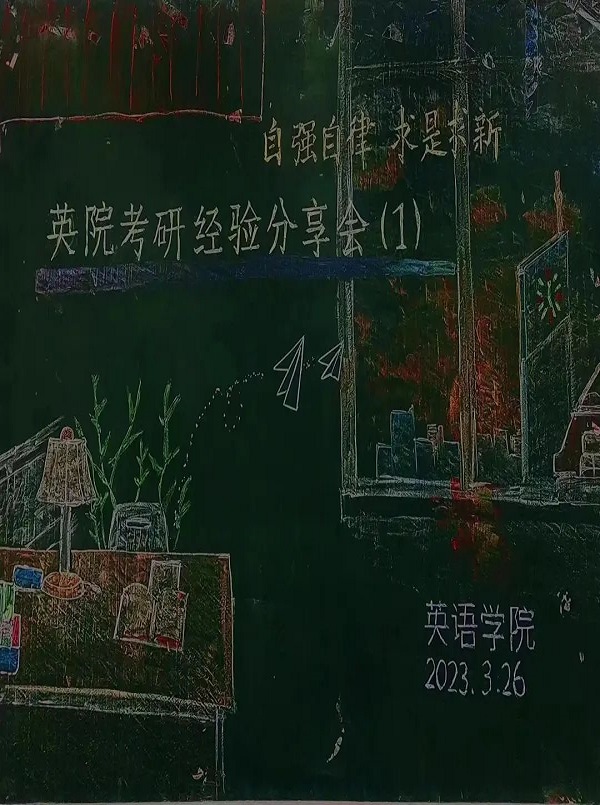 自强自律 求是求新
英院考研经验分享会(1)
英语学院
2023.3.26